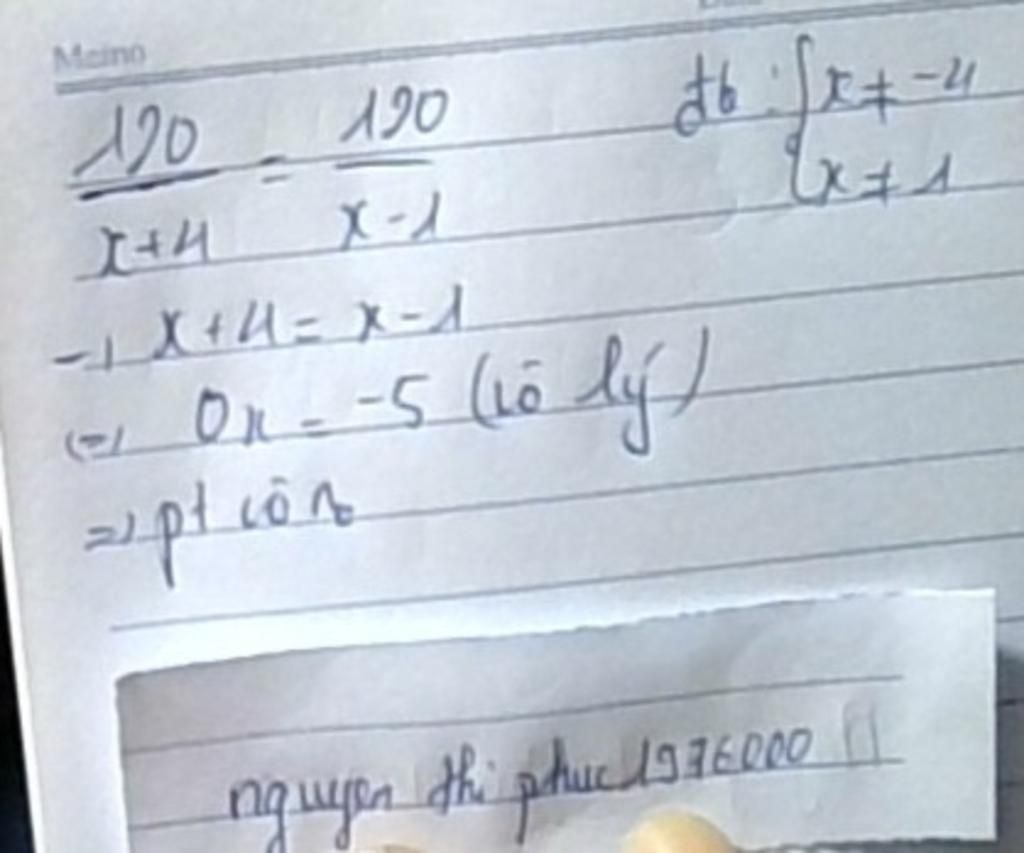 Memo
190/x+4 = 190/x-1 đk: { x ≠ -4
x ≠ 1
=> x+4 = x-1
<=> 0x = -5 (vô lý)
=> pt vô n0
nguyen thi phuc 1976000